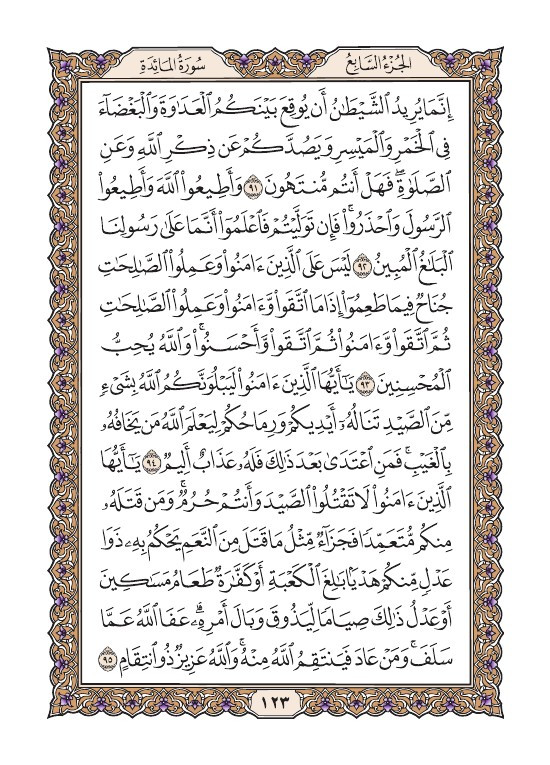 الجُزْءُ السَّابِعُ
سُورَةُ المَائِدَةِ
إِنَّمَا يُرِيدُ ٱلشَّيْطَٰنُ أَن يُوقِعَ بَيْنَكُمُ ٱلْعَدَٰوَةَ وَٱلْبَغْضَآءَ
فِى ٱلْخَمْرِ وَٱلْمَيْسِرِ وَيَصُدَّكُمْ عَن ذِكْرِ ٱللَّهِ وَعَنِ
ٱلصَّلَوٰةِ ۖ فَهَلْ أَنتُم مُّنتَهُونَ ٩١ وَأَطِيعُوا۟ ٱللَّهَ وَأَطِيعُوا۟
ٱلرَّسُولَ وَٱحْذَرُوا۟ ۚ فَإِن تَوَلَّيْتُمْ فَٱعْلَمُوٓا۟ أَنَّمَا عَلَىٰ رَسُولِنَا
ٱلْبَلَٰغُ ٱلْمُبِينُ ٩٢ لَيْسَ عَلَى ٱلَّذِينَ ءَامَنُوا۟ وَعَمِلُوا۟ ٱلصَّٰلِحَٰتِ
جُنَاحٌ فِيمَا طَعِمُوٓا۟ إِذَا مَا ٱتَّقَوا۟ وَّءَامَنُوا۟ وَعَمِلُوا۟ ٱلصَّٰلِحَٰتِ
ثُمَّ ٱتَّقَوا۟ وَّءَامَنُوا۟ ثُمَّ ٱتَّقَوا۟ وَّأَحْسَنُوا۟ ۗ وَٱللَّهُ يُحِبُّ
ٱلْمُحْسِنِينَ ٩٣ يَٰٓأَيُّهَا ٱلَّذِينَ ءَامَنُوا۟ لَيَبْلُوَنَّكُمُ ٱللَّهُ بِشَىْءٍ
مِّنَ ٱلصَّيْدِ تَنَالُهُۥٓ أَيْدِيكُمْ وَرِمَاحُكُمْ لِيَعْلَمَ ٱللَّهُ مَن يَخَافُهُۥ
بِٱلْغَيْبِ ۚ فَمَنِ ٱعْتَدَىٰ بَعْدَ ذَٰلِكَ فَلَهُۥ عَذَابٌ أَلِيمٌ ٩٤ يَٰٓأَيُّهَا
ٱلَّذِينَ ءَامَنُوا۟ لَا تَقْتُلُوا۟ ٱلصَّيْدَ وَأَنتُمْ حُرُمٌ ۚ وَمَن قَتَلَهُۥ
مِنكُم مُّتَعَمِّدًا فَجَزَآءٌ مِّثْلُ مَا قَتَلَ مِنَ ٱلنَّعَمِ يَحْكُمُ بِهِۦ ذَوَا
عَدْلٍ مِّنكُمْ هَدْيًۢا بَٰلِغَ ٱلْكَعْبَةِ أَوْ كَفَّٰرَةٌ طَعَامُ مَسَٰكِينَ
أَوْ عَدْلُ ذَٰلِكَ صِيَامًا لِّيَذُوقَ وَبَالَ أَمْرِهِۦ ۗ عَفَا ٱللَّهُ عَمَّا
سَلَفَ ۚ وَمَنْ عَادَ فَيَنتَقِمُ ٱللَّهُ مِنْهُ ۗ وَٱللَّهُ عَزِيزٌ ذُو ٱنتِقَامٍ ٩٥
١٢٣